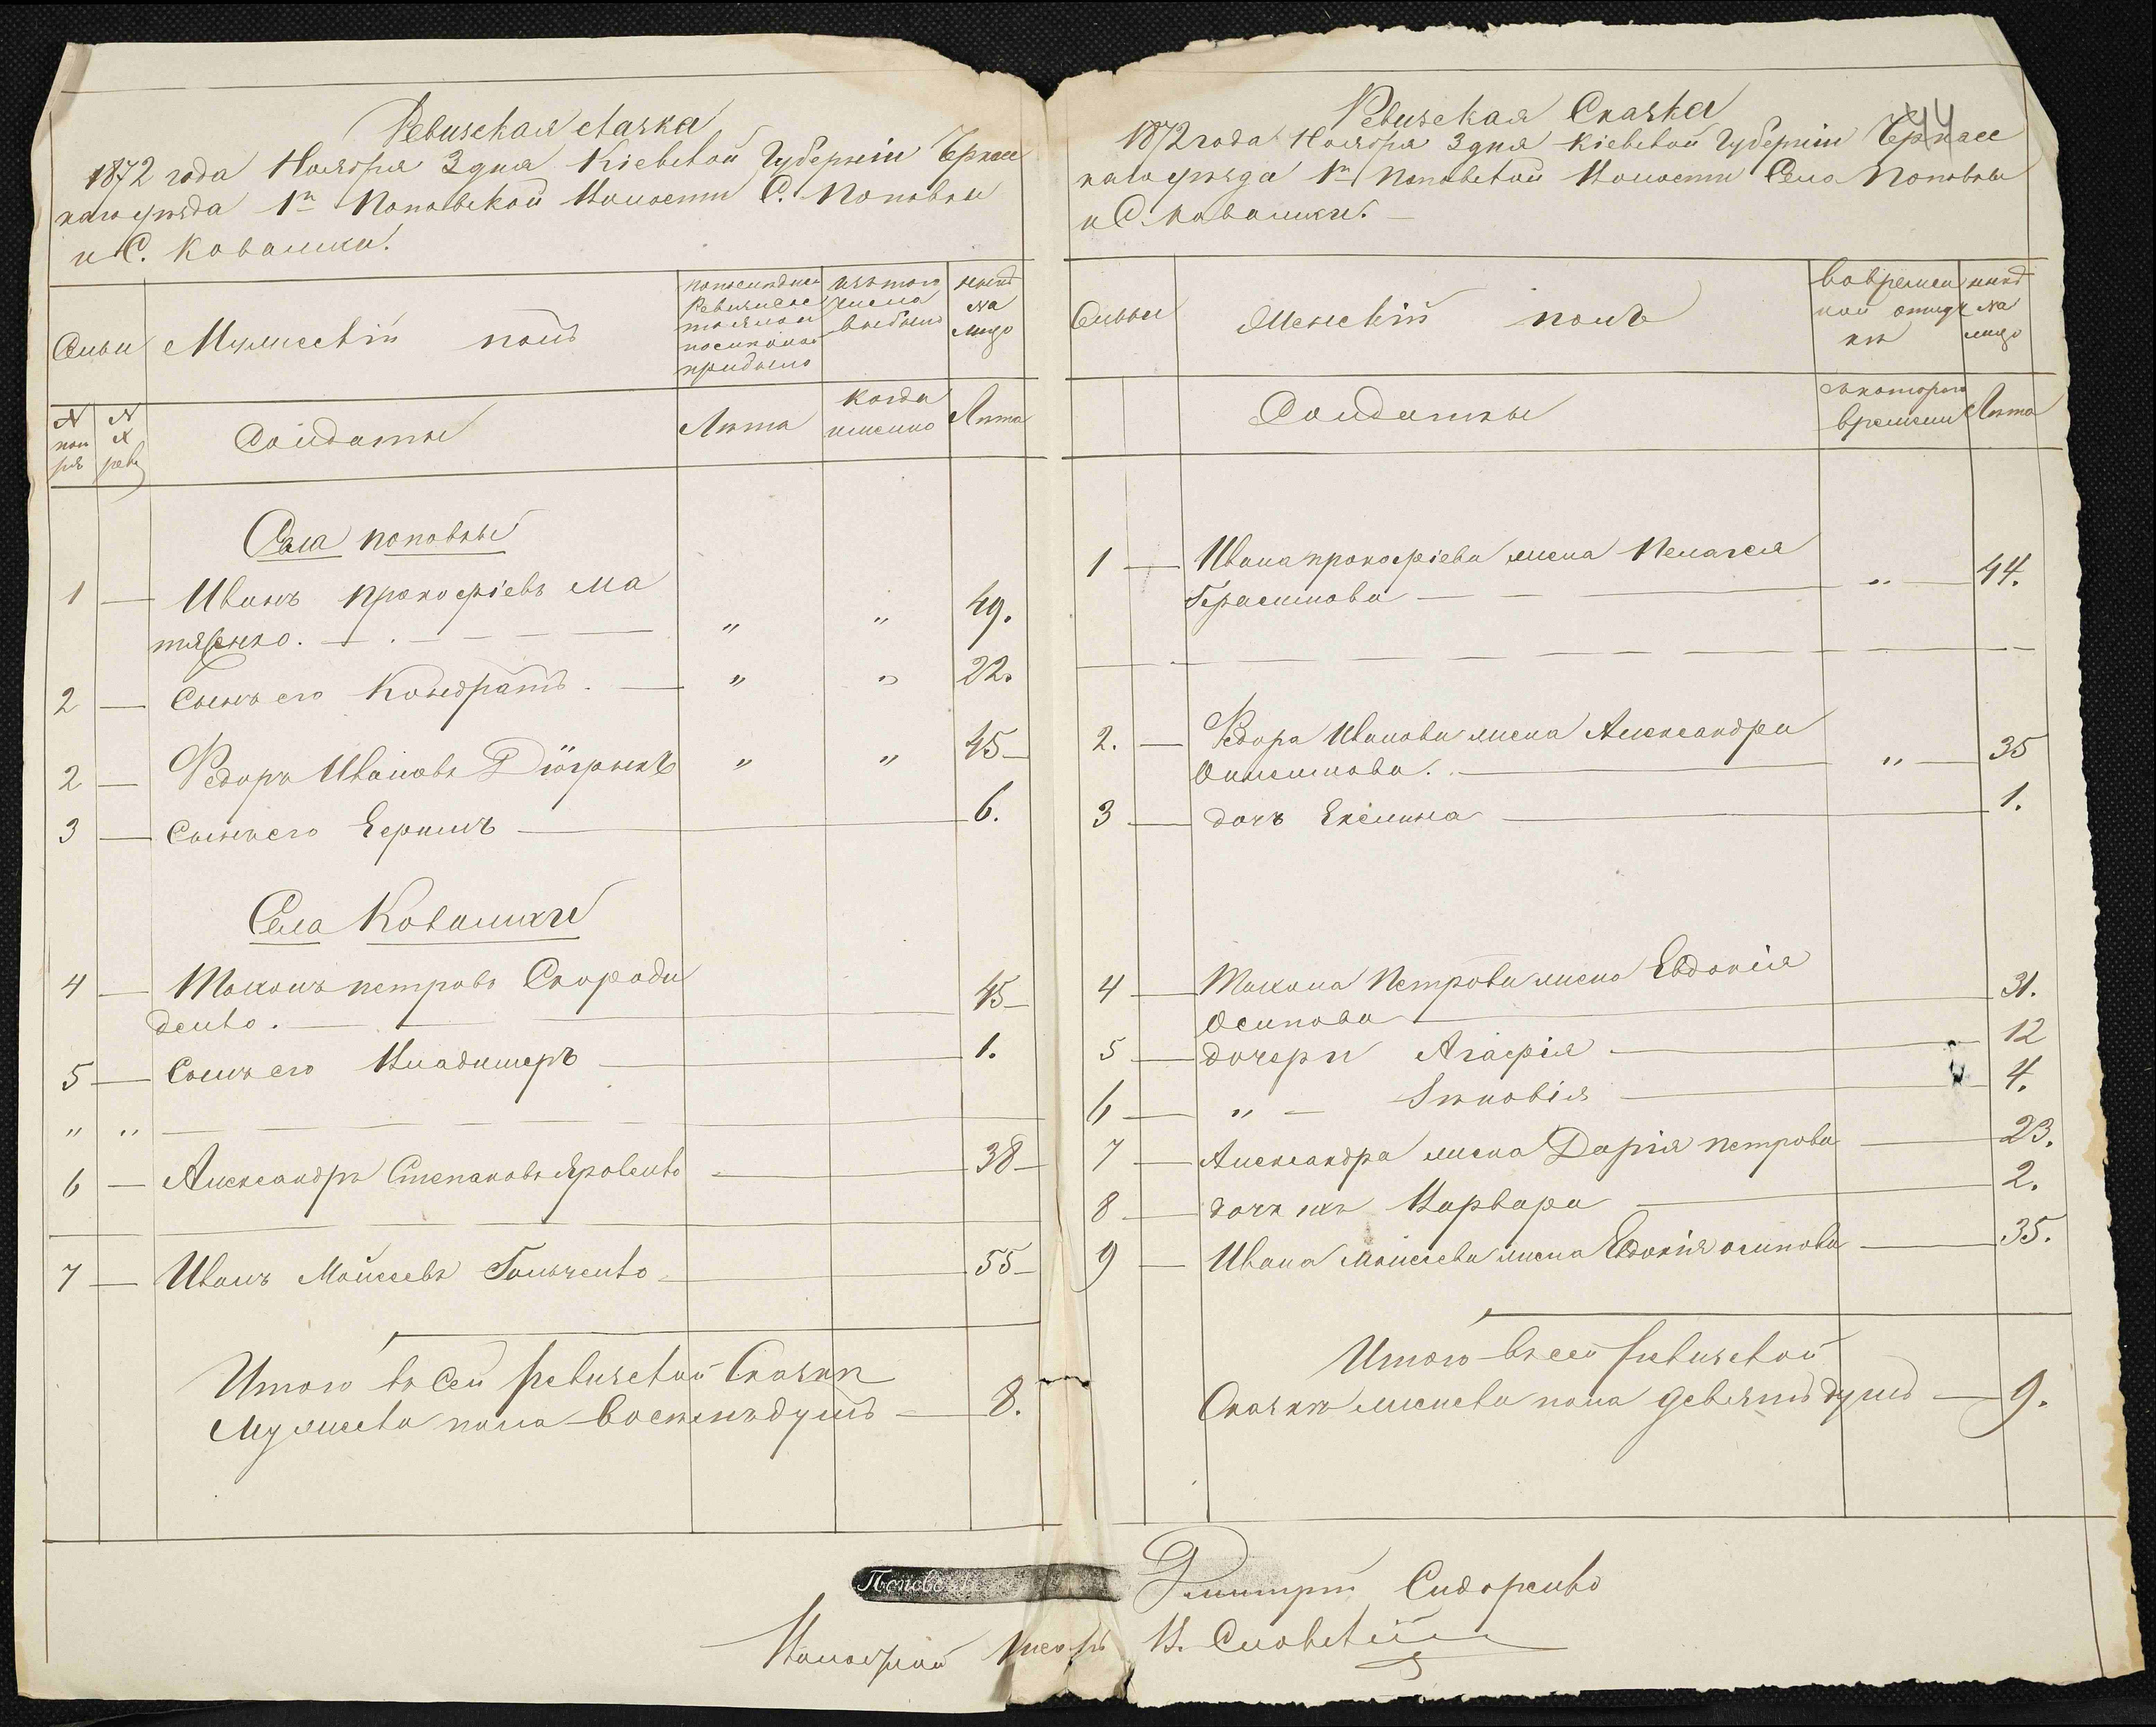 Ревизская сказка
1872 года Ноября 3 дня Кіевской Губерніи Черкас
каго уѣзда 1й Поповской Волости С. Поповки
и С. Ковалихи.
Семьи Мужескій полъ
изъ того
числа
выбыло
нынѣ
на
лицо
N
N
Солдаты
Лѣта
когда
именно
Лѣта
Села Поповки
1 — Иванъ Прокофіевъ Ма
тяенко. — " " 49.
2 — Сынъ его Кондратъ. — " " 22.
2 — Федоръ Ивановъ " " 45 —
3 — Сынъ его Герасимъ — 6.
Села Ковалихи
4 — Петровъ Скороди
денко. — 45 —
5 — Сынъ его Владимеръ — 1.
" "
6 — Александръ Степановъ Яровенко — 38 —
7 — Иванъ Мойсеевъ Гольченко — 55 —
Итого въ сей ревизской Сказки
Мужеска пола восемь душъ — 8.
Ревизская Сказка
44
1872 года Ноября 3 дня Кіевской Губерніи Черкас
каго уѣзда 1й Поповской Волости Села Поповки
и С. Ковалихи. —
Семьи Женскій полъ
во времен
ной отлуч
кѣ
нынѣ
на
лицо
Солдатки
съ котораго
времени
Лѣта
1 — Ивана Прокофіева жена Пелагея
Герасимова — " — 44.
2. — Федора Иванова жена Александра
" — 35
3 — дочь — 1.
4 — Петрова жена Евдокія
Осипова — 31.
5 — дочери Агафія — 12
6 — " — Зиновія — 4.
7 — Александра жена Дарія Петрова — 23.
8 — дочь ихъ Варвара — 2.
9 — Ивана Моисеева жена Евдокія Осипова — 35.
Итого въ сей ревизской
Сказкѣ женска пола девять душъ — 9.
Дмитрій Сидоренко
Волостной Писарь